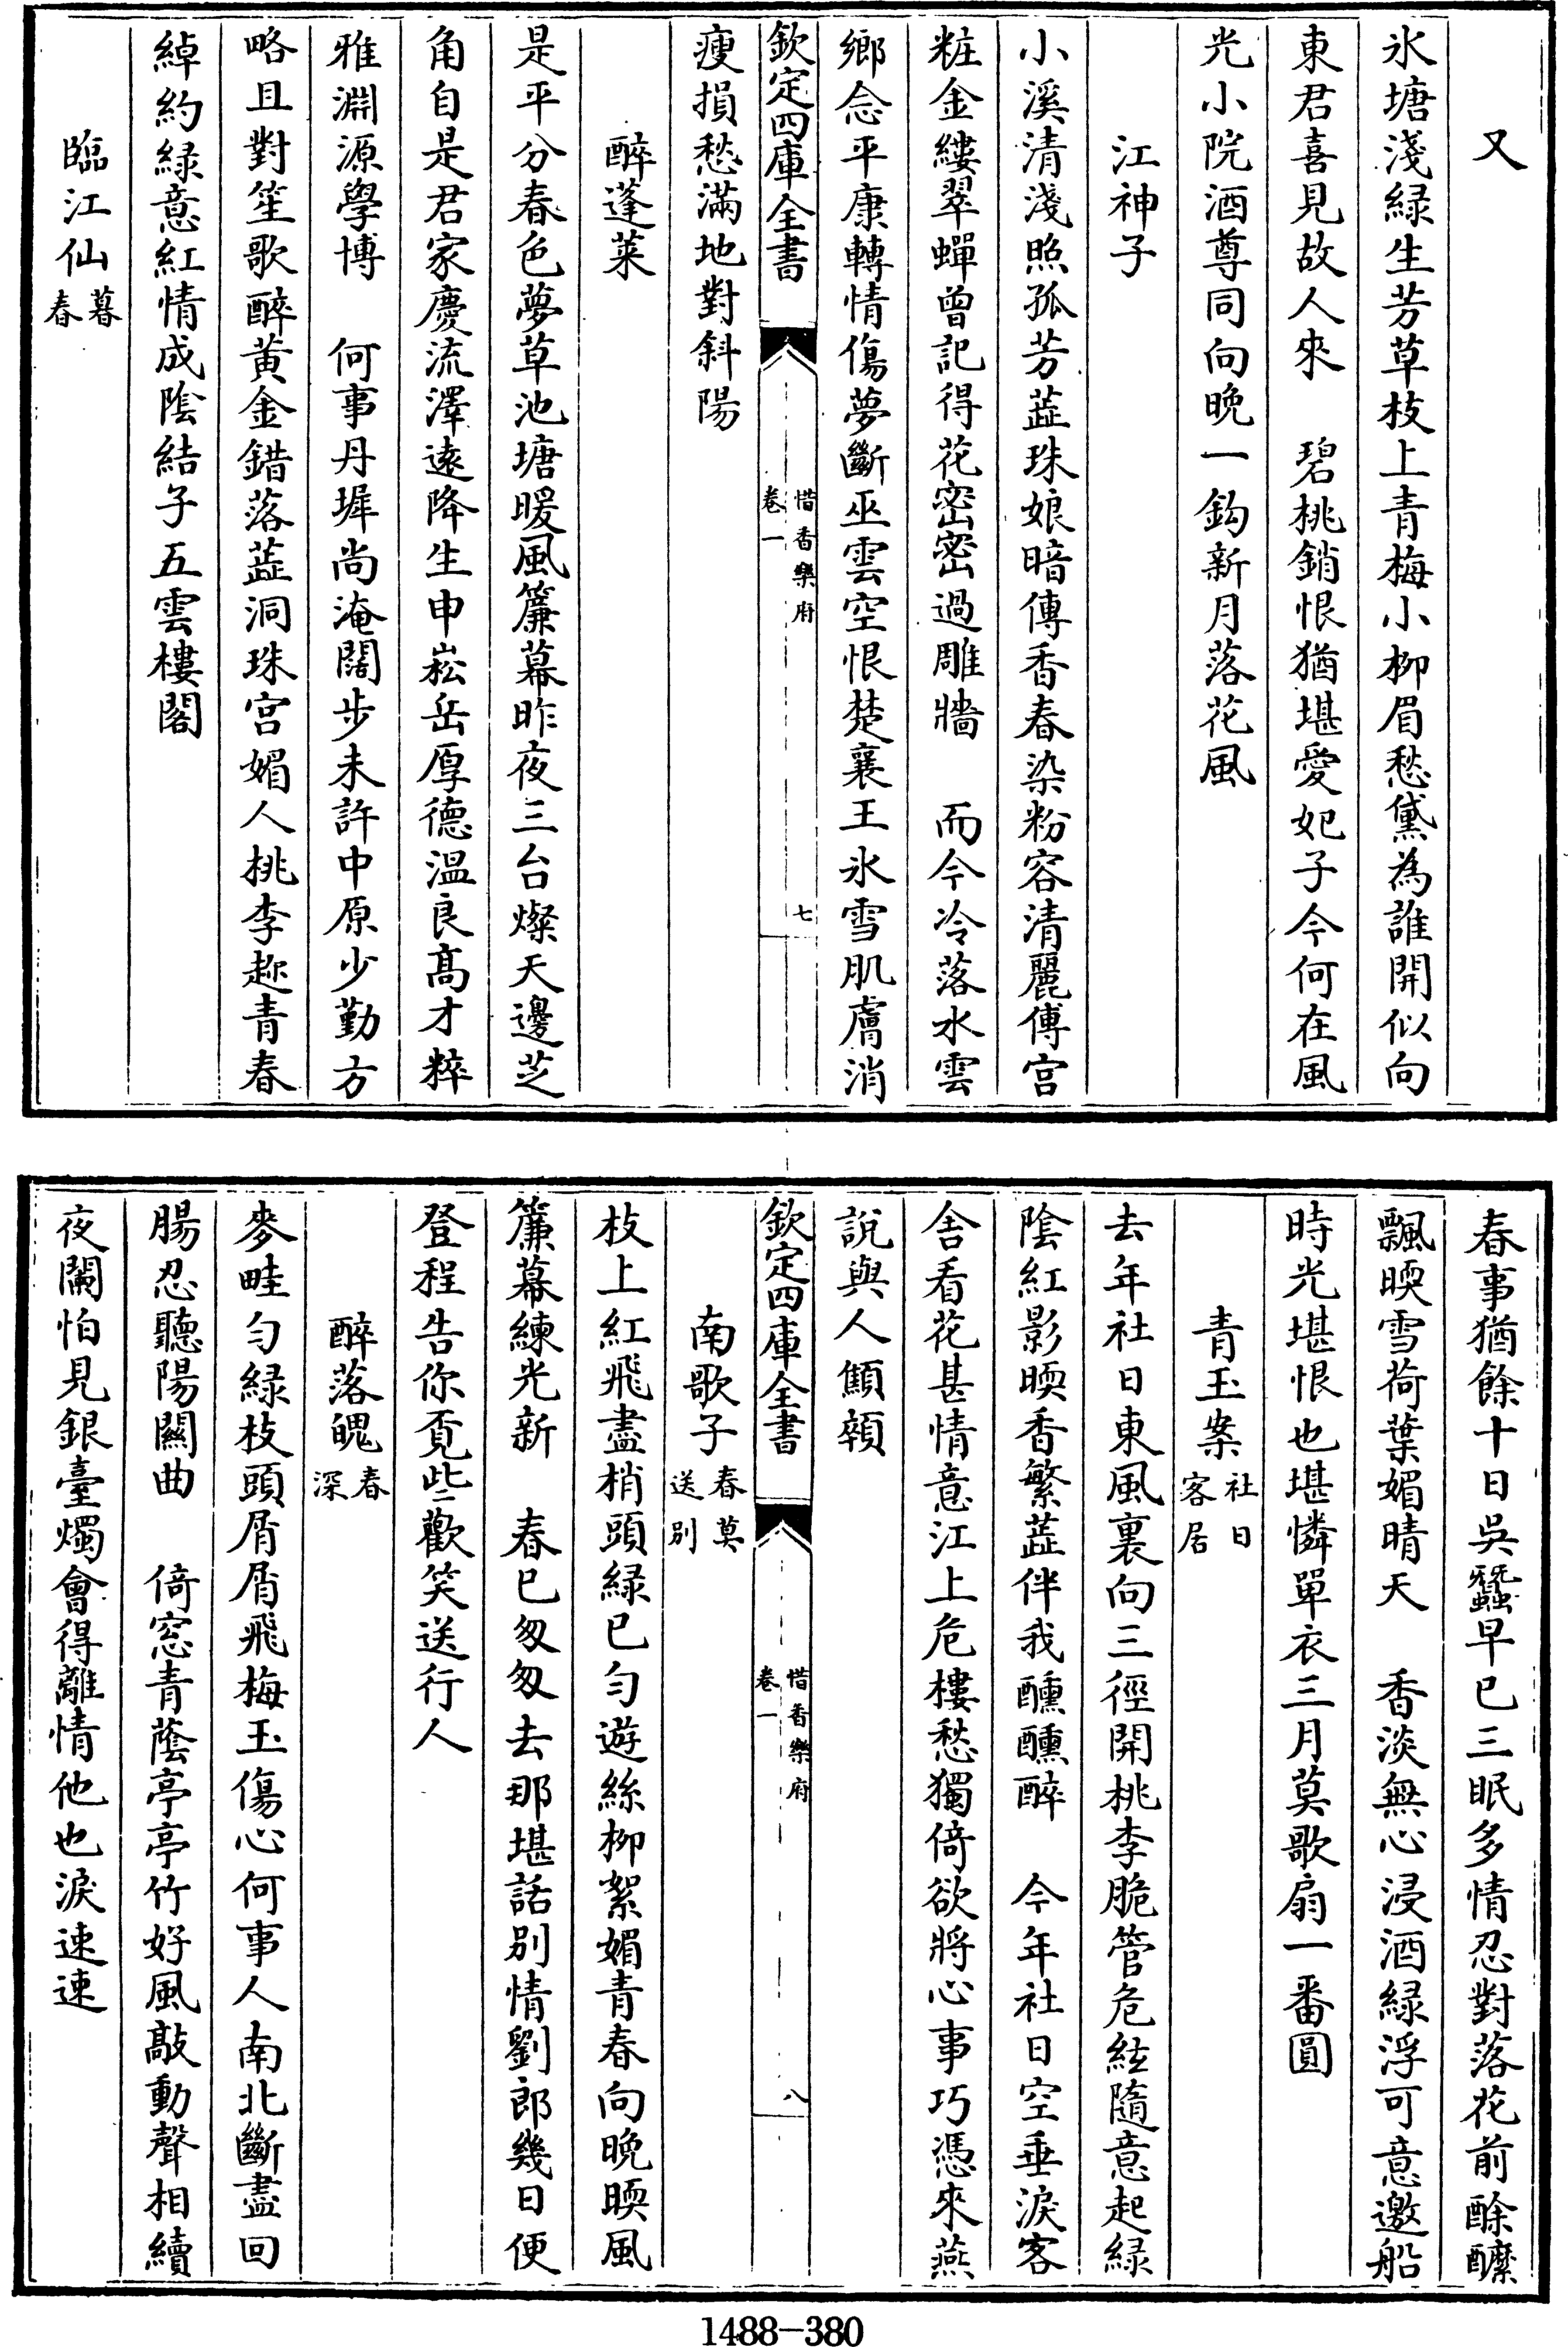 又
氷塘淺緑生芳草枝上青梅小柳眉愁黛為誰開似向
東君喜見故人來　碧桃銷恨猶堪愛妃子今何在風
光小院酒尊同向晩一鈎新月落花風
江神子
小溪清淺照孤芳蕋珠娘暗傳香春染粉容清麗傅宫
粧金縷翠蟬曽記得花宻宻過雕牆　而今冷落水雲
鄉念平康轉情傷夢斷巫雲空恨楚襄王氷雪肌膚消
欽定四庫全書
惜香樂府
卷一
七
瘦損愁滿地對斜陽
醉蓬萊
是平分春色夢草池塘暖風簾幕昨夜三台燦天邊芝
角自是君家慶流澤逺降生申崧岳厚德温良髙才粹
雅淵源學博　何事丹墀尚淹闊步未許中原少勤方
略且對笙歌醉黄金錯落蕋洞珠宫媚人桃李趂青春
綽約緑意紅情成隂結子五雲樓閣
臨江仙暮春
春事猶餘十日吳蠶早已三眠多情忍對落花前酴醾
飄暎雪荷葉媚晴天　香淡無心浸酒緑浮可意邀船
時光堪恨也堪憐單衣三月莫歌扇一番圓
青玉案社日客居
去年社日東風裏向三徑開桃李脆管危絃隨意起緑
隂紅影暎香繁蕋伴我醺醺醉　今年社日空垂淚客
舍看花甚情意江上危樓愁獨倚欲將心事巧憑來燕
說與人顦顇
欽定四庫全書
惜香樂府
卷一
八
南歌子春莫送别
枝上紅飛盡梢頭緑已勻遊絲柳絮媚青春向晩暎風
簾幕練光新　春已匆匆去那堪話别情劉郎幾日便
登程告你覔些歡笑送行人
醉落魄春深
麥畦勻緑枝頭屑屑飛梅玉傷心何事人南北斷盡回
腸忍聽陽闗曲　倚窓青蔭亭亭竹好風敲動聲相續
夜闌怕見銀臺燭會得離情他也淚速速
1488-380